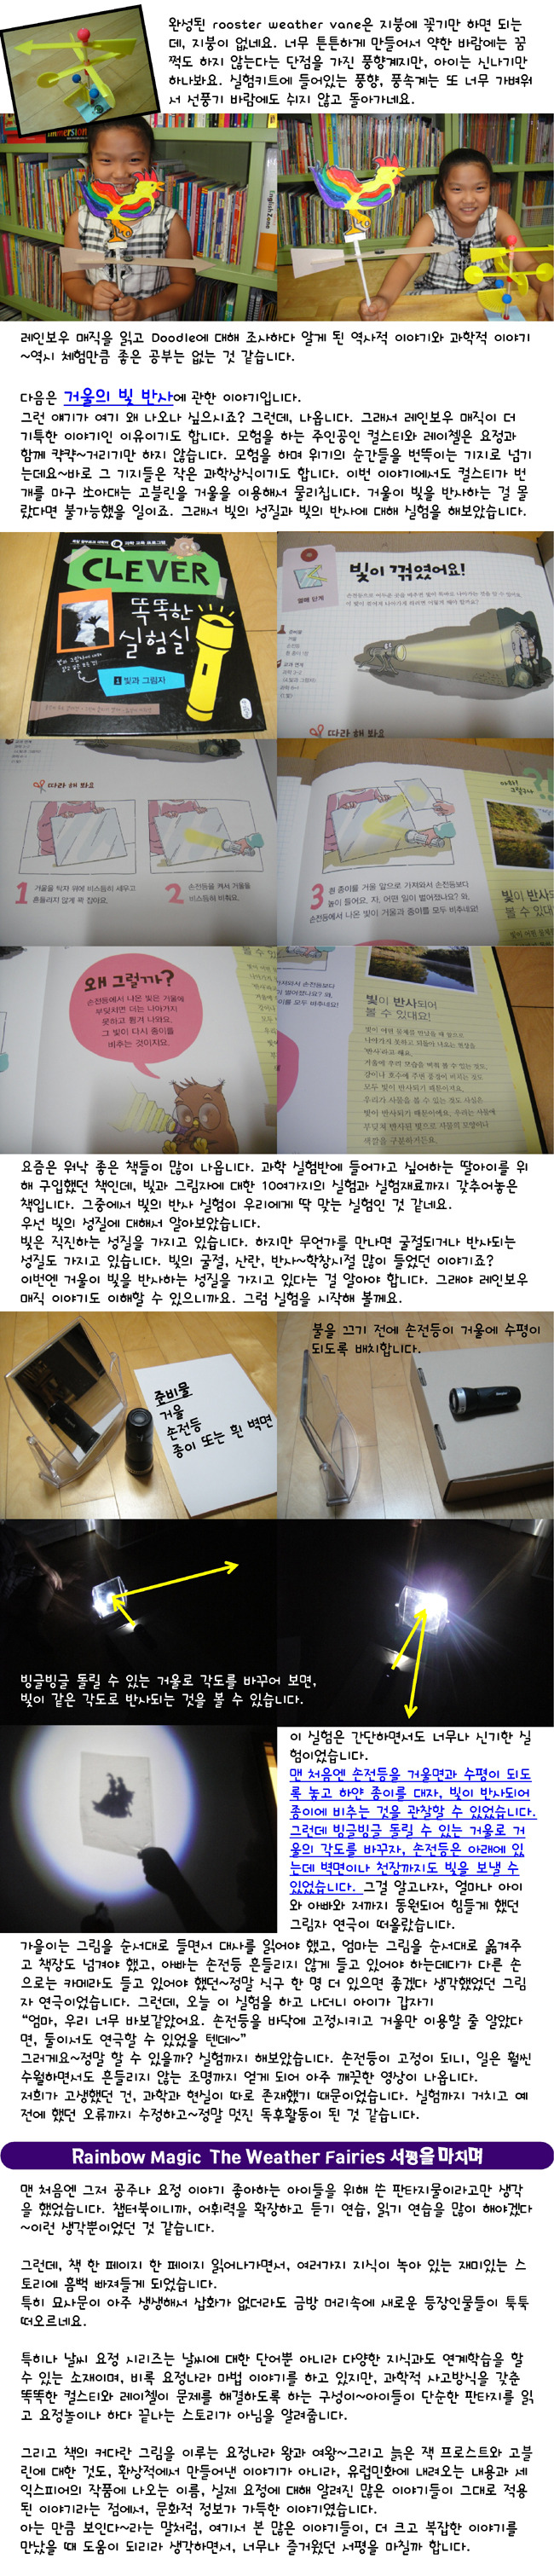 완성된 rooster weather vane은 지붕에 꽂기만 하면 되는
데, 지붕이 없네요. 너무 튼튼하게 만들어서 약한 바람에는 꿈
쩍도 하지 않는다는 단점을 가진 풍향계지만, 아이는 신나기만
하나봐요. 실험키트에 들어있는 풍향, 풍속계는 또 너무 가벼워
서 선풍기 바람에도 쉬지 않고 돌아가네요.
레인보우 매직을 읽고 Doodle에 대해 조사하다 알게 된 역사적 이야기와 과학적 이야기
~역시 체험만큼 좋은 공부는 없는 것 같습니다.
다음은 거울의 빛 반사에 관한 이야기입니다.
그런 얘기가 여기 왜 나오나 싶으시죠? 그런데, 나옵니다. 그래서 레인보우 매직이 더
기특한 이야기인 이유이기도 합니다. 모험을 하는 주인공인 컬스티와 레이첼은 요정과
함께 꺅꺅~거리기만 하지 않습니다. 모험을 하며 위기의 순간들을 번뜩이는 기지로 넘기
는데요~바로 그 기지들은 작은 과학상식이기도 합니다. 이번 이야기에서도 컬스티가 번
개를 마구 쏘아대는 고블린을 거울을 이용해서 물리칩니다. 거울이 빛을 반사하는 걸 몰
랐다면 불가능했을 일이죠. 그래서 빛의 성질과 빛의 반사에 대해 실험을 해보았습니다.
CLEVER
똑똑한
실험실
빛과 그림자
빛이 꺾였어요!
따라 해 봐요
따라 해 봐요
1 거울을 탁자 위에 비스듬히 세우고
흔들리지 않게 꽉 잡아요.
2 손전등을 켜서 거울을
비스듬히 비춰요.
3 흰 종이를 거울 앞으로 가져와서 손전등보다
높이 들어요. 자, 어떤 일이 벌어졌나요? 와,
손전등에서 나온 빛이 거울과 종이를 모두 비추네요!
빛이 반사되
볼 수 있대
왜 그럴까?
손전등에서 나온 빛은 거울에
부딪치면 더는 나아가지
못하고 튕겨 나와요.
그 빛이 다시 종이를
비추는 것이지요.
빛이 반사되어
볼 수 있대요!
빛이 어떤 물체를 만났을 때 앞으로
나아가지 못하고 되돌아 나오는 현상을
반사라고 해요.
거울에 우리 모습을 비춰 볼 수 있는 것도,
강이나 호수에 주변 풍경이 비치는 것도
모두 빛이 반사되기 때문이지요.
우리가 사물을 볼 수 있는 것도 사실은
빛이 반사되기 때문이에요. 우리는 사물에
부딪쳐 반사된 빛으로 사물의 모양이나
색깔을 구분하거든요.
요즘은 워낙 좋은 책들이 많이 나옵니다. 과학 실험반에 들어가고 싶어하는 딸아이를 위
해 구입했던 책인데, 빛과 그림자에 대한 10여가지의 실험과 실험재료까지 갖추어놓은
책입니다. 그중에서 빛의 반사 실험이 우리에게 딱 맞는 실험인 것 같네요.
우선 빛의 성질에 대해서 알아보았습니다.
빛은 직진하는 성질을 가지고 있습니다. 하지만 무언가를 만나면 굴절되거나 반사되는
성질도 가지고 있습니다. 빛의 굴절, 산란, 반사~학창시절 많이 들었던 이야기죠?
이번엔 거울이 빛을 반사하는 성질을 가지고 있다는 걸 알아야 합니다. 그래야 레인보우
매직 이야기도 이해할 수 있으니까요. 그럼 실험을 시작해 볼께요.
준비물
거울
손전등
종이 또는 흰 벽면
불을 끄기 전에 손전등이 거울에 수평이
되도록 배치합니다.
빙글빙글 돌릴 수 있는 거울로 각도를 바꾸어 보면,
빛이 같은 각도로 반사되는 것을 볼 수 있습니다.
이 실험은 간단하면서도 너무나 신기한 실
험이었습니다.
맨 처음엔 손전등을 거울면과 수평이 되도
록 놓고 하얀 종이를 대자, 빛이 반사되어
종이에 비추는 것을 관찰할 수 있었습니다.
그런데 빙글빙글 돌릴 수 있는 거울로 거
울의 각도를 바꾸자, 손전등은 아래에 있
는데 벽면이나 천장까지도 빛을 보낼 수
있었습니다. 그걸 알고나자, 얼마나 아이
와 아빠와 저까지 동원되어 힘들게 했던
그림자 연극이 떠올랐습니다.
가을이는 그림을 순서대로 들면서 대사를 읽어야 했고, 엄마는 그림을 순서대로 옮겨주
고 책장도 넘겨야 했고, 아빠는 손전등 흔들리지 않게 들고 있어야 하는데다가 다른 손
으로는 카메라도 들고 있어야 했던~정말 식구 한 명 더 있으면 좋겠다 생각했었던 그림
자 연극이었습니다. 그런데, 오늘 이 실험을 하고 나더니 아이가 갑자기
“엄마, 우리 너무 바보같았어요. 손전등을 바닥에 고정시키고 거울만 이용할 줄 알았다
면, 둘이서도 연극할 수 있었을 텐데~”
그러게요~정말 할 수 있을까? 실험까지 해보았습니다. 손전등이 고정이 되니, 일은 훨씬
수월하면서도 흔들리지 않는 조명까지 얻게 되어 아주 깨끗한 영상이 나옵니다.
저희가 고생했던 건, 과학과 현실이 따로 존재했기 때문이었습니다. 실험까지 거치고 예
전에 했던 오류까지 수정하고~정말 멋진 독후활동이 된 것 같습니다.
Rainbow Magic The Weather Fairies 서평을 마치며
맨 처음엔 그저 공주나 요정 이야기 좋아하는 아이들을 위해 쓴 판타지물이라고만 생각
을 했었습니다. 챕터북이니까, 어휘력을 확장하고 듣기 연습, 읽기 연습을 많이 해야겠다
~이런 생각뿐이었던 것 같습니다.
그런데, 책 한 페이지 한 페이지 읽어나가면서, 여러가지 지식이 녹아 있는 재미있는 스
토리에 흠뻑 빠져들게 되었습니다.
특히 묘사문이 아주 생생해서 삽화가 없더라도 금방 머리속에 새로운 등장인물들이 툭툭
떠오르네요.
특히나 날씨 요정 시리즈는 날씨에 대한 단어뿐 아니라 다양한 지식과도 연계학습을 할
수 있는 소재이며, 비록 요정나라 마법 이야기를 하고 있지만, 과학적 사고방식을 갖춘
똑똑한 컬스티와 레이첼이 문제를 해결하도록 하는 구성이~아이들이 단순한 판타지를 읽
고 요정놀이나 하다 끝나는 스토리가 아님을 알려줍니다.
그리고 책의 커다란 그림을 이루는 요정나라 왕과 여왕~그리고 늙은 잭 프로스트와 고블
린에 대한 것도, 환상적에서 만들어낸 이야기가 아니라, 유럽민화에 내려오는 내용과 셰
익스피어의 작품에 나오는 이름, 실제 요정에 대해 알려진 많은 이야기들이 그대로 적용
된 이야기라는 점에서, 문화적 정보가 가득한 이야기였습니다.
아는 만큼 보인다~라는 말처럼, 여기서 본 많은 이야기들이, 더 크고 복잡한 이야기를
만났을 때 도움이 되리라 생각하면서, 너무나 즐거웠던 서평을 마칠까 합니다.